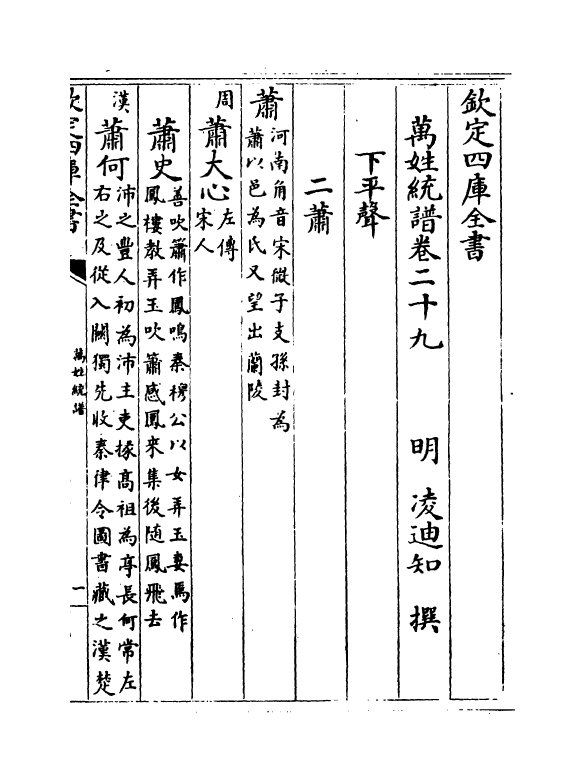 欽定四庫全書
萬姓統譜卷二十九
明 凌迪知 撰
下平聲
二蕭
蕭
河南角音宋微子支孫封為
蕭以邑為氏又望出蘭陵
周
蕭大心
左傳
宋人
蕭史
善吹簫作鳳鳴秦穆公以女弄玉妻焉作
鳳樓教弄玉吹簫感鳳來集後随鳳飛去
漢
蕭何
沛之豐人初為沛主吏掾高祖為亭長何常左
右之及從入關獨先收秦律令圖書藏之漢楚
欽定四庫全書
萬姓統譜
一